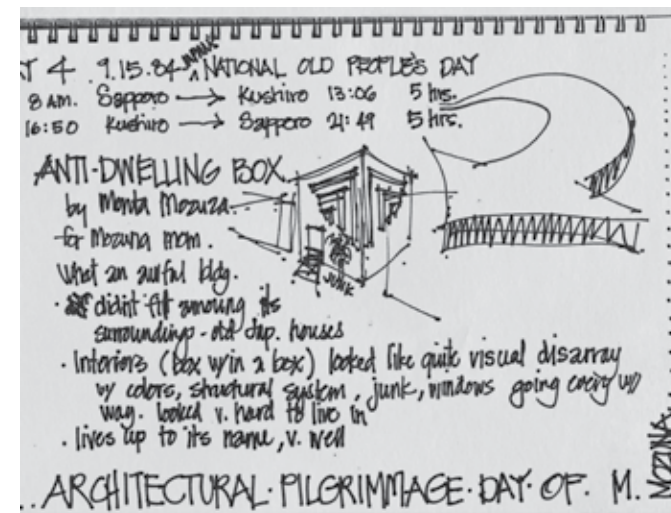 T 4 9.15.84 JAPAN'S NATIONAL OLD PEOPLE'S DAY
8 AM. Sapporo → Kushiro 13:06 5 hrs.
16:50 Kushiro → Sapporo 21:49 5 hrs.
ANTI-DWELLING BOX
by Monta Mozuza
for Mozuna mom.
What an awful bldg.
· didn't fit among its
surroundings - old Jap. houses
JUNK
· Interiors (box w/in a box) looked like quite visual disarray
w/ colors, structural system, junk, windows going every
way. looked v. hard to live in
· lives up to its name, v. well
.. ARCHITECTURAL · PILGRIMMAGE · DAY · OF · M. MOZUNA